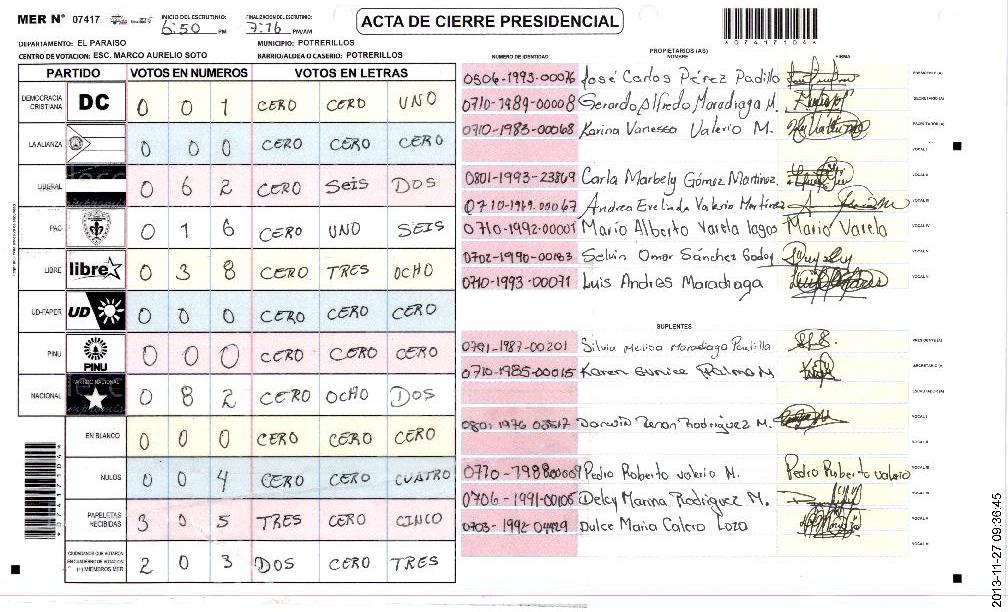 MER N° 07417
INICIO DEL ESCRUTINIO: 6:50 PM
FINALIZACION DEL ESCRUTINIO: 7:16 PM/AM
ACTA DE CIERRE PRESIDENCIAL
*07417104*
DEPARTAMENTO: EL PARAISO
MUNICIPIO: POTRERILLOS
CENTRO DE VOTACION: ESC. MARCO AURELIO SOTO
BARRIO/ALDEA O CASERIO: POTRERILLOS
PARTIDO VOTOS EN NUMEROS VOTOS EN LETRAS
DEMOCRACIA CRISTIANA DC 0 0 1 CERO CERO UNO
LA ALIANZA 0 0 0 CERO CERO CERO
LIBERAL 0 6 2 CERO SEIS DOS
PAC 0 1 6 CERO UNO SEIS
LIBRE libre 0 3 8 CERO TRES OCHO
UD-FAPER UD 0 0 0 CERO CERO CERO
PINU PINU 0 0 0 CERO CERO CERO
NACIONAL 0 8 2 CERO OCHO DOS
EN BLANCO 0 0 0 CERO CERO CERO
NULOS 0 0 4 CERO CERO CUATRO
PAPELETAS RECIBIDAS 3 0 5 TRES CERO CINCO
CIUDADANOS QUE VOTARON EN CUADERNO DE VOTACION (+) MIEMBROS MER 2 0 3 DOS CERO TRES
*07417104*
PROPIETARIOS (AS)
NUMERO DE IDENTIDAD NOMBRE FIRMA
0506-1993-00076 José Carlos Pérez Padilla PRESIDENTE (A)
0710-1989-00008 Gerardo Alfredo Maradiaga M. SECRETARIO (A)
0710-1983-00068 Karina Vanessa Valerio M. ESCRUTADOR (A)
VOCAL I
0801-1993-23869 Carla Marbely Gómez Martinez. VOCAL II
0710-1969-00067 Andrea Evelinda Valerio Martinez VOCAL III
0710-1992-00001 Mario Alberto Varela lagos Mario Varela VOCAL IV
0702-1990-00183 Selvin Omar Sánchez Godoy VOCAL V
0710-1993-00071 Luis Andres Maradiaga VOCAL VI
SUPLENTES
0701-1987-00201 Silvia Melissa Maradiaga Padilla PRESIDENTE (A)
0710-1985-00015 Karen Eunice Palma M SECRETARIO (A)
ESCRUTADOR (A)
0801 1976 Darwin Rodriguez M. VOCAL I
VOCAL II
0710-1988 00009 Pedro Roberto valerio M. Pedro Roberto valerio VOCAL III
0706-1991-00106 Delcy Marina Rodriguez M. VOCAL IV
0703-1992 04429 Dulce Maria Calero Lozo VOCAL V
VOCAL VI
2013-11-27 09:36:45